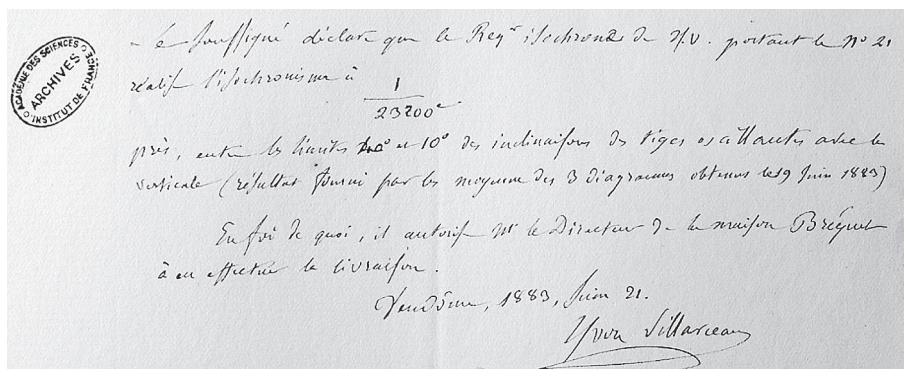 ACADÉMIE DES SCIENCES
ARCHIVES
INSTITUT DE FRANCE
Le soussigné déclare que le Regr isochrone de Y.V. portant le No 21
réalise l'isochronisme à
1
23200e
près, entre les limites et 10° des inclinaisons des tiges oscillantes avec la
verticale (résultat fourni par les moyennes des 3 diagrammes obtenus le 19 Juin 1883)
En foi de quoi, il autorise Mr le Directeur de la maison Bréguet
à en effectuer la livraison.
Vendôme, 1883, Juin 21.
Yvon Villarceau